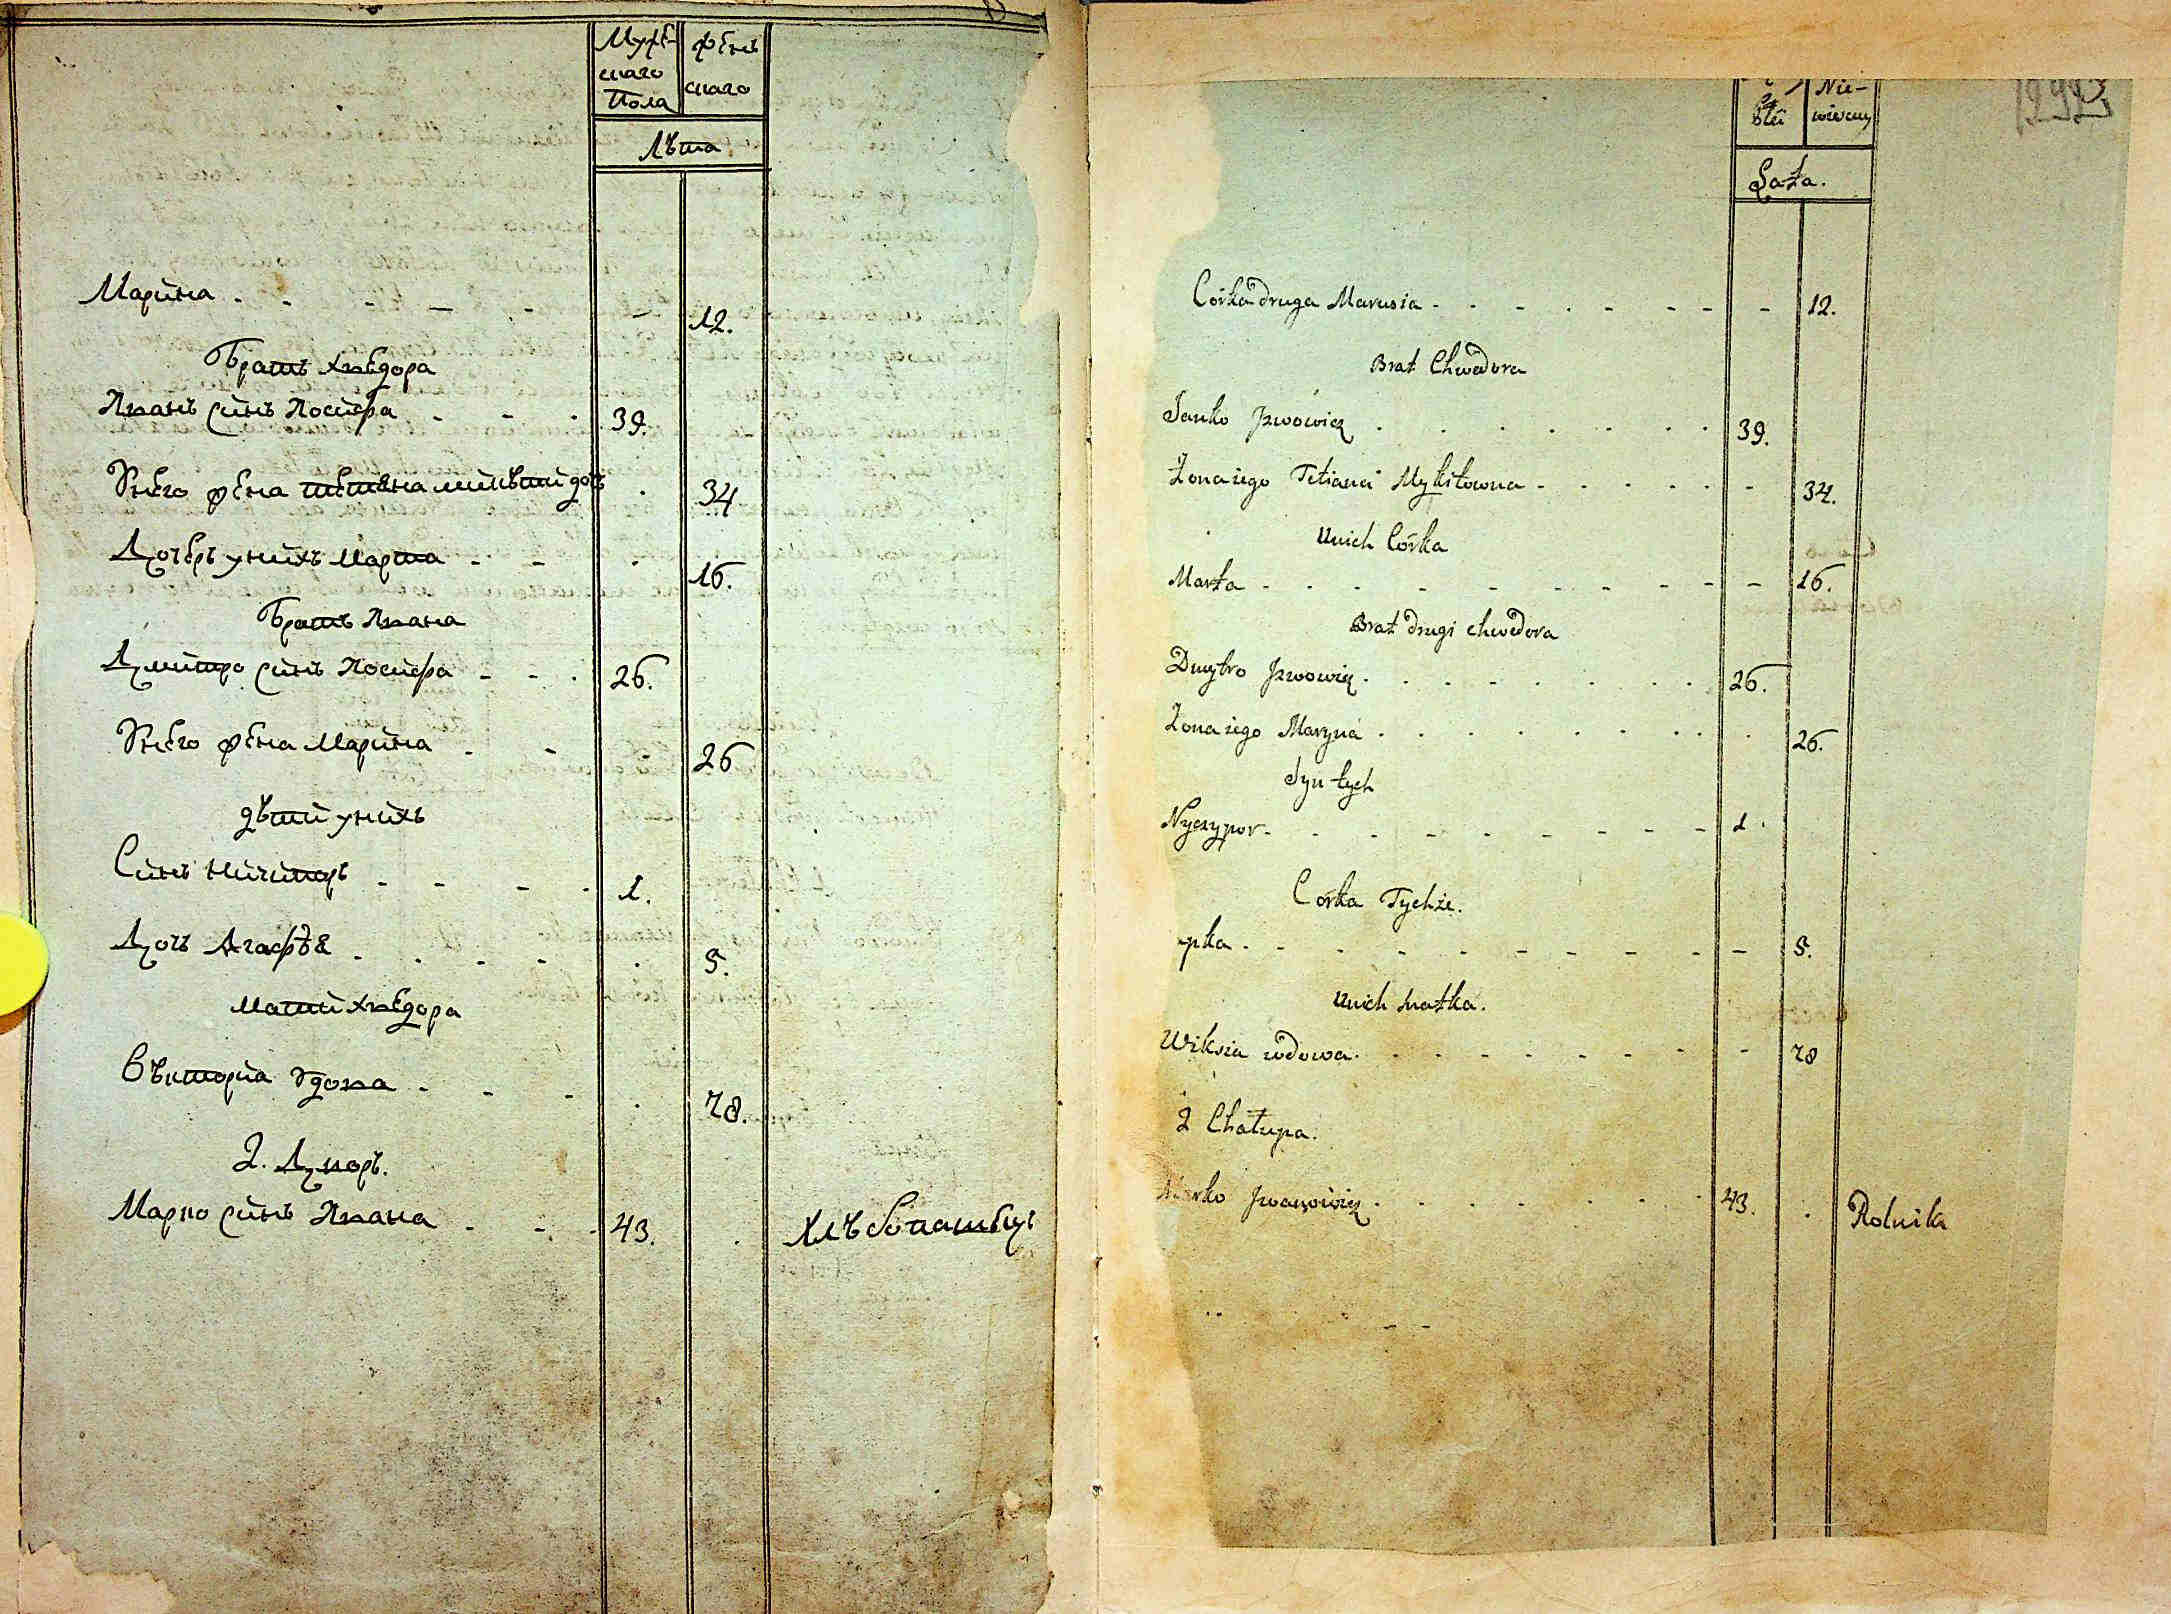 Мужс-
скаго
Пола
женс
скаго
Лѣта
Марина - - - - - 12.
Братъ хведора
Иванъ синъ Иосифа - - - 39.
Унего жена тетяна микѣтий дочь . 34
Дочеръ унихъ Марта - - - 16.
Братъ Ивана
Димитро синъ Иосифа - - . 26.
Унего жена Марина - - - 26
дѣти унихъ
Синъ Ничипоръ - - - - 1.
Дочъ Агафѣя - . - - . 5.
Мати хведора
Вѣкторiа Удова - - - . 78.
2. Дворъ.
Марко синъ Ивана - - . - 43. . Хлѣбопашецъ
Nie-
wiescy
Lata.
Córka druga Marusia - - - - - - - - 12.
Brat Chwedora
Janko Jzwowicz . . . . . . . 39.
Żona iego Tetiana Mykitowna - - - - - - 34.
Unich Córka
Marta - - - - - - - - - - 16.
Brat drugi chwedora
Dmytro Jzwowicz . . . . . . . . 26.
Żona iego Maryna . . . . . . . . 26.
Syn tych
Nyczypor - - - - - - - - - 1.
Córka Tychże.
pka - - - - - - - - - - 5.
Unich matka.
Wiksia wdowa . . . . . . . - - 78
2 Chałupa.
Marko Jwanowicz . . . . . . . 43. . Rolnik